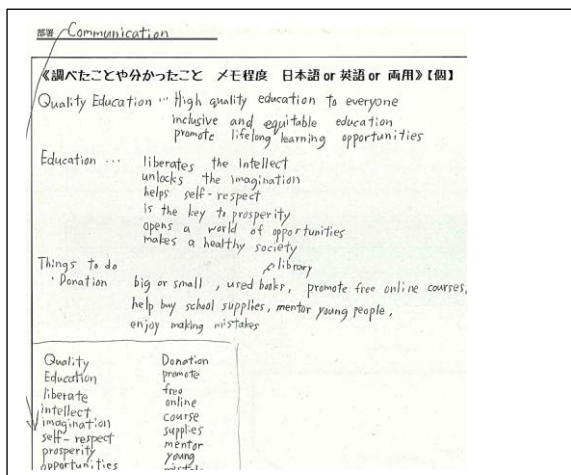 部署 Communication
《調べたことや分かったこと メモ程度 日本語 or 英語 or 両用》【個】
Quality Education … High quality education to everyone
inclusive and equitable education
promote lifelong learning opportunities
Education … liberates the intellect
unlocks the imagination
helps self-respect
is the key to prosperity
opens a world of opportunities
makes a healthy society
Things to do
library
・Donation big or small, used books, promote free online courses,
help buy school supplies, mentor young people,
enjoy making mistakes
Quality Donation
Education promote
liberate free
intellect online
imagination course
self-respect supplies
prosperity mentor
opportunities young